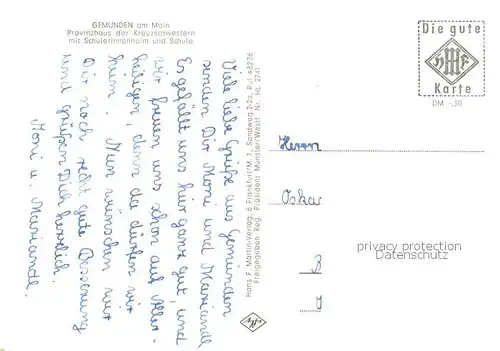 GEMÜNDEN am Main
Provinzhaus der Kreuzschwestern
mit Schülerinnenheim und Schule
Viele liebe Grüße aus Gemünden
senden Dir Moni und Mariandl
Es gefällt uns hier ganz gut, und
wir freuen uns schon auf Aller-
heiligen, denn da dürfen wir
heim. Nun wünschen wir
Dir noch recht gute Besserung
und grüßen Dich herzlich.
Moni u. Mariandl.
Hans F. Martin-Verlag, 6 Frankfurt/M 1, Sandweg 52a, Ruf 48236
Freigegeben Reg. Präsident Münster/Westf. Nr. HL 2241
Die gute
HMF
Karte
DM -,30
Herrn
Oskar
B
privacy protection
Datenschutz
Agfa